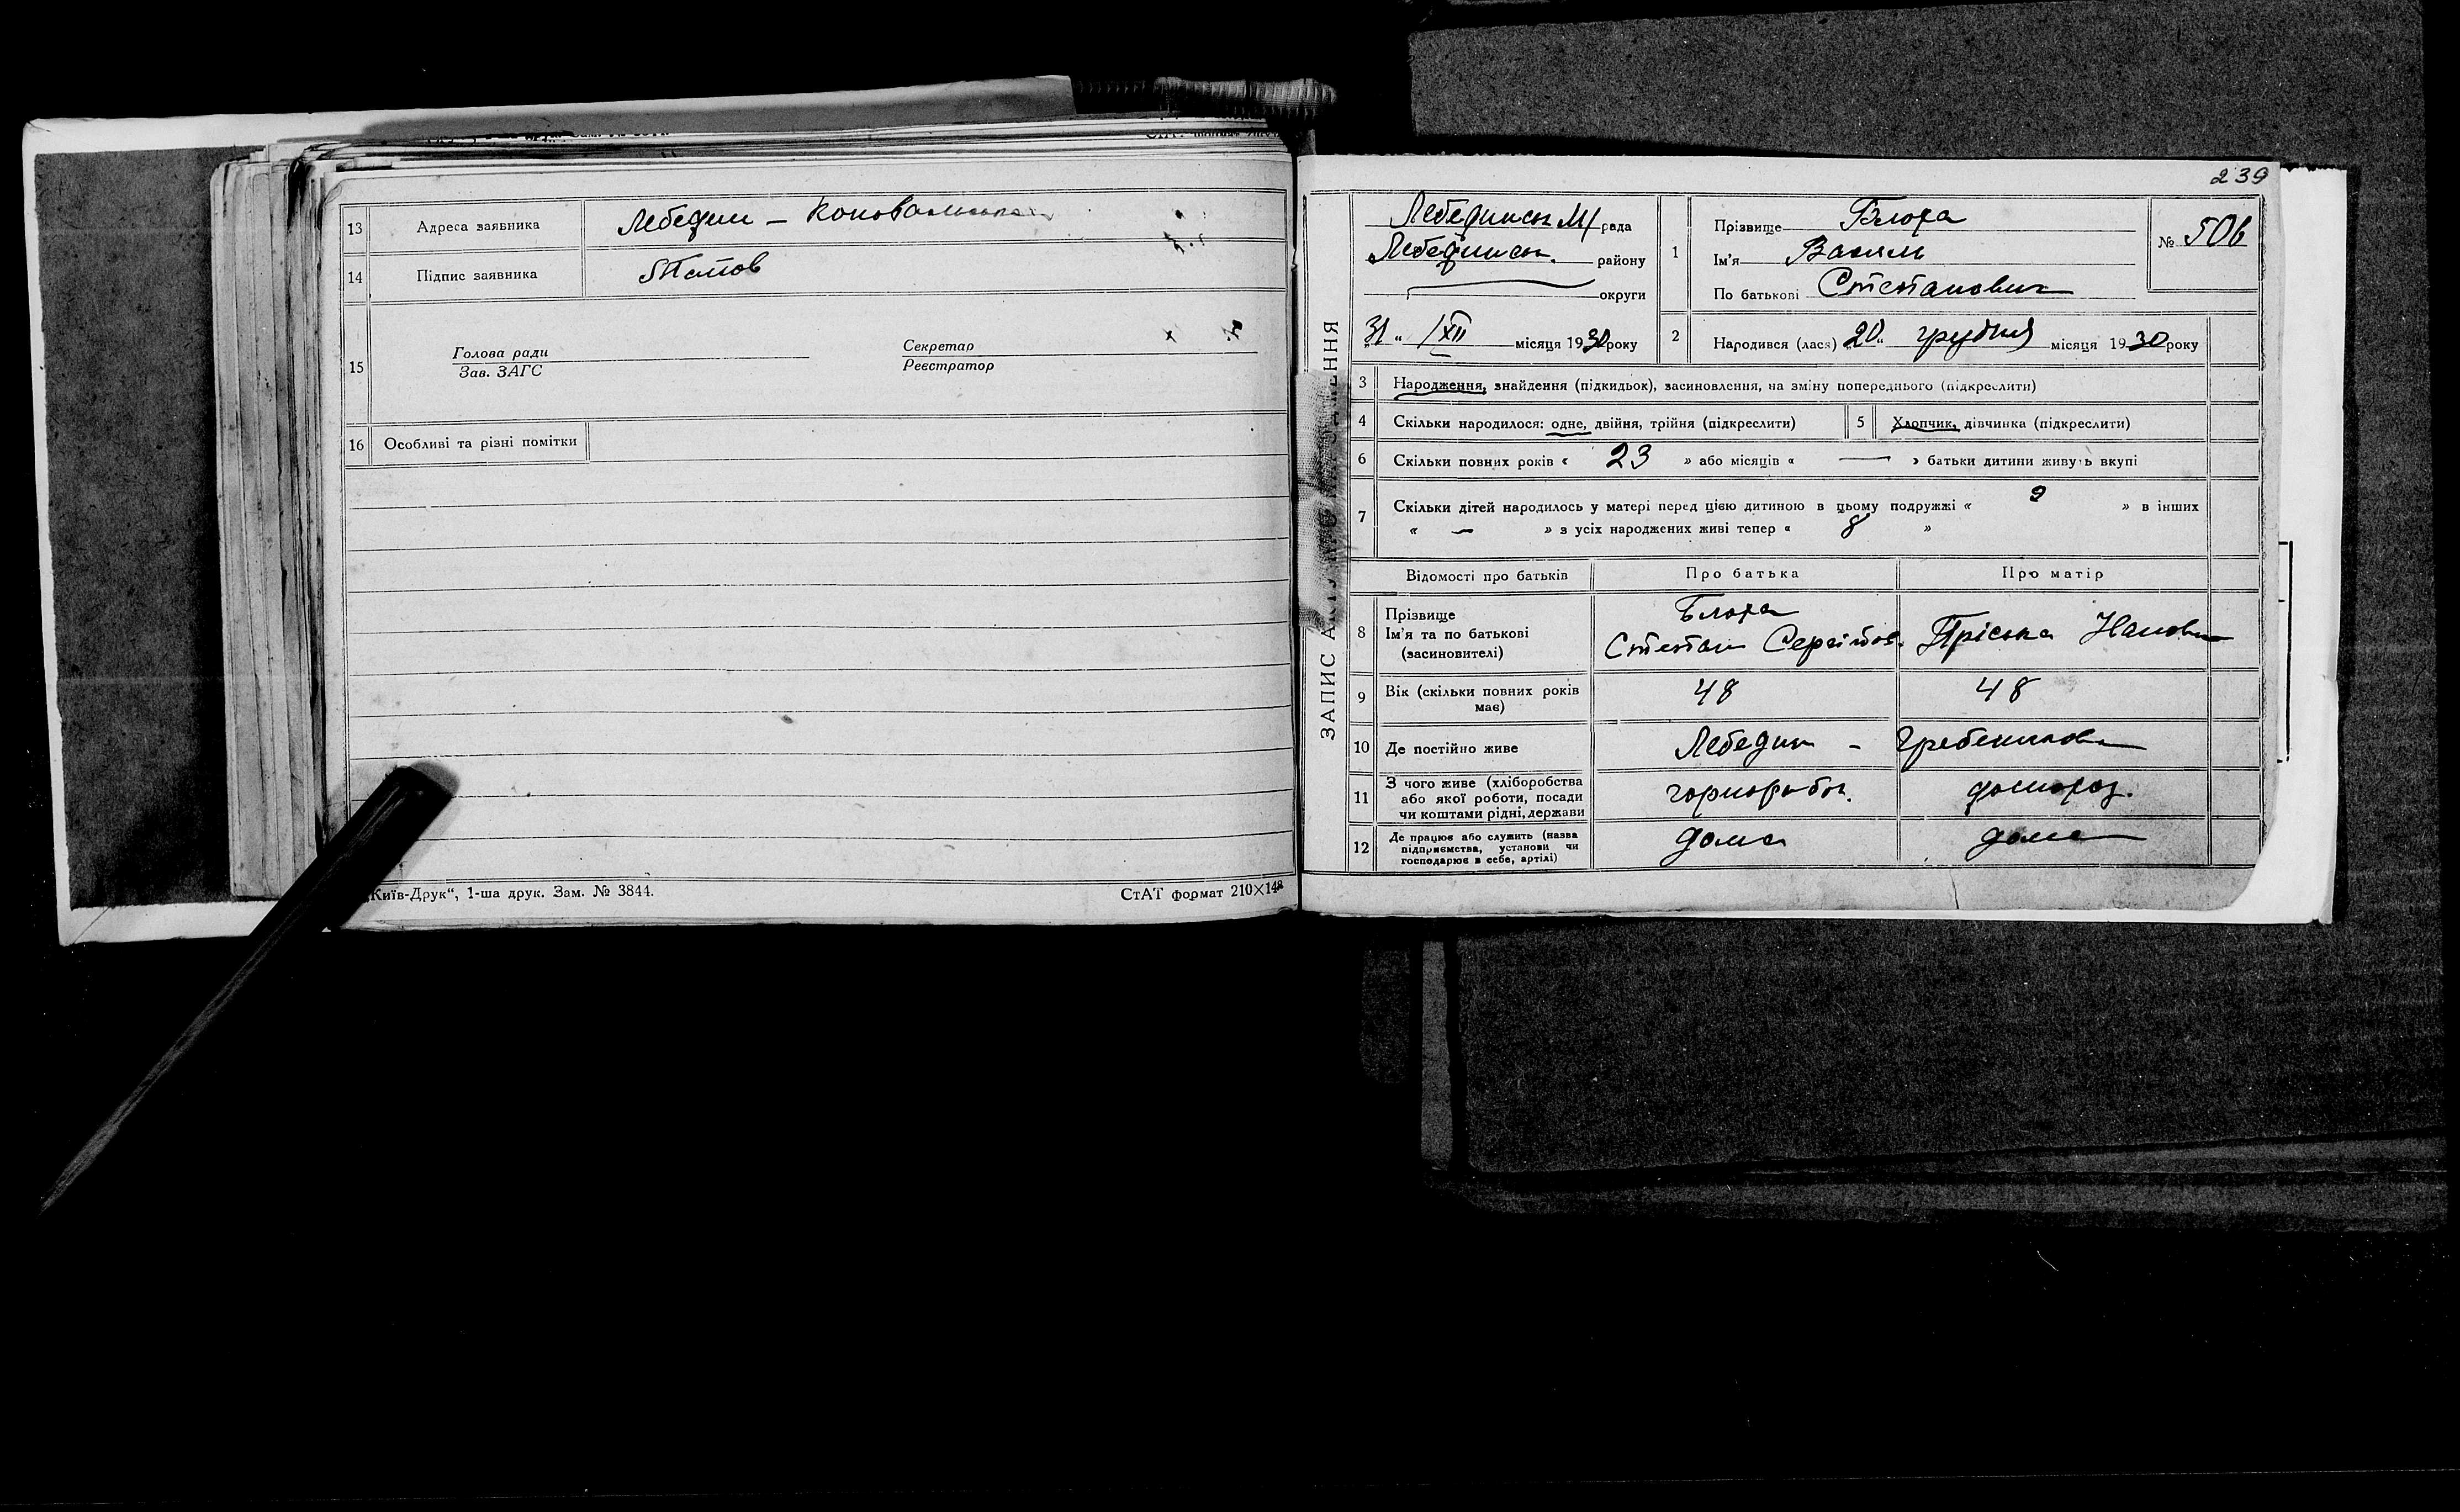 13 Адреса заявника Лебедин –
14 Підпис заявника
15 Голова ради Секретар
Зав. ЗАГС Реєстратор
16 Особливі та різні помітки
„Київ-Друк“, 1-ша друк. Зам. № 3844. СтАТ формат 210×148
239
ЗАПИС
Лебединськ М/рада
Лебединськ. району
округи
31 „ /XII місяця 1930 року
1 Прізвище Блоха
Ім'я Василь
По батькові Степанович
№ 506
2 Народився (лася) „20“ грудня місяця 1930 року
3 Народження, знайдення (підкидьок), засиновлення, на зміну попереднього (підкреслити)
4 Скільки народилося: одне, двійня, трійня (підкреслити) 5 Хлопчик, дівчинка (підкреслити)
6 Скільки повних років « 23 » або місяців « — » батьки дитини живуть вкупі
7 Скільки дітей народилось у матері перед цією дитиною в цьому подружжі « 9 » в інших
« — » з усіх народжених живі тепер « 8 »
Відомості про батьків Про батька Про матір
8 Прізвище Блоха
Ім'я та по батькові Степан Пріська
(засиновителі)
9 Вік (скільки повних років 48 48
має)
10 Де постійно живе Лебедин –
11 З чого живе (хліборобства
або якої роботи, посади чорнороб. домохоз.
чи коштами рідні, держави
12 Де працює або служить (назва
підприємства, установи чи дома дома
господарює в себе, артілі)